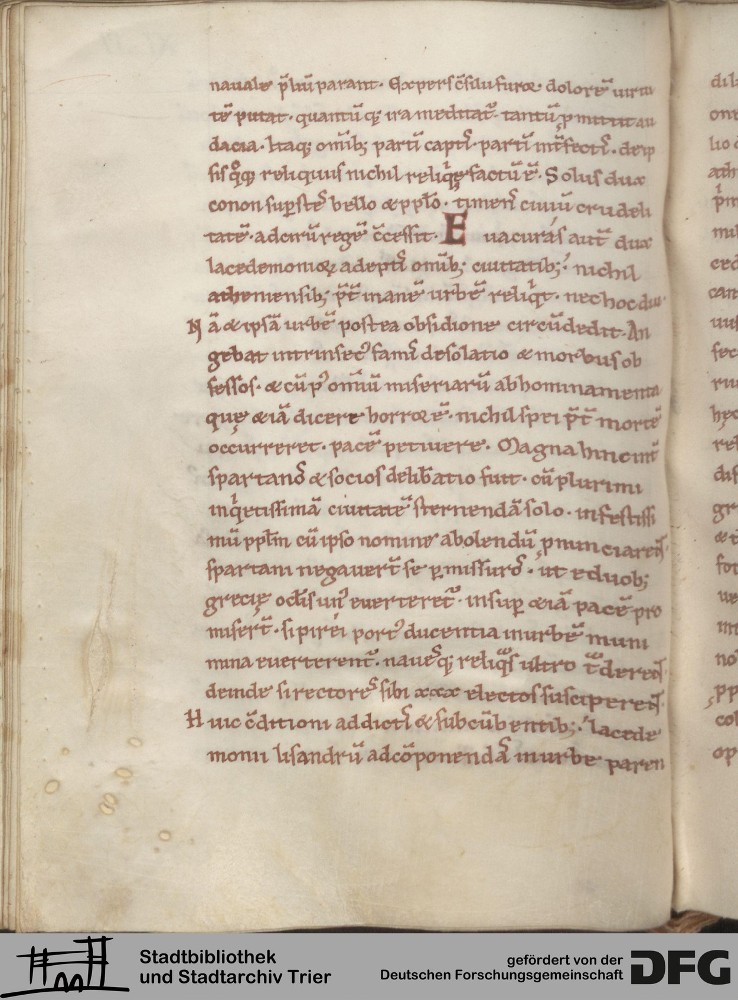 navale p̄liū parant. Ex persc̄silufuroꝛ dolorē viriu
tē putat. quantūqꝫ ira meditat᷑. tantū ꝓmittit au
dacia. Itaqꝫ om̄ibꝫ partī captī. partī int̄fectī. de ip
sis qͦqꝫ reliquiis nichil reliq̄ę factū ē. Solus dux
conon sup̄stes̄ bello & pp̄lo. timens̄ ciuiū crudeli
tatē. ad cirū regē c̄cessit. Euacuras᷑ aut̄ dux
lacedemonioꝝ adeptis̄ om̄ibꝫ ciuitatibꝫ. nichil
atheniensibꝫ p̄t̄ inanē urbē reliq̇t. nec hoc diu.
Nā & ipsā urbē postea obsidione circūdedit. An
gebat intrinsecꝰ famis̄ desolatio & morbus ob
sessos. & cū pꝰ om̄iū miseriarū abhominamenta
quę & iā dicere horror ē. nichil spei p̄t̄ mortē
occurreret. pacē petivere. Magna hinc int̄
spartanos̄ & socios delib̄atio fuit. cū plurimi
inq̇etissimā ciuitatē sternendā solo. infestissi
mū pp̄lm̄ cū ipso nomine abolendū ꝓnunciarent.
spartani negaver̄t se ꝑmissuros̄. ut e duobꝫ
grecię oc̄lis unꝰ everteret᷑. insup̄ & iā pacē pro
miser̄t. si pirei portꝰ ducentia in urbē muni
mina everterent᷑. navesqꝫ reliq̄s ultro t̄derent.
deinde si rectores̄ sibi xxx electos susciperent.
Huic c̄ditioni addictis̄ & subcūbentibꝫ. lacede
monii lisandrū ad cōponendā in urbe paren
Stadtbibliothek
und Stadtarchiv Trier
gefördert von der
Deutschen Forschungsgemeinschaft
DFG